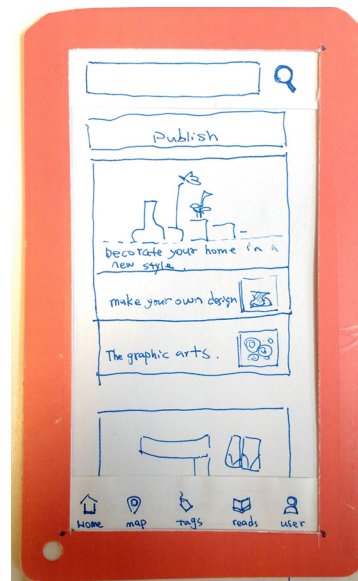 publish
Decorate your home in a
new style.
make your own design
The graphic arts.
Home map tags reads user